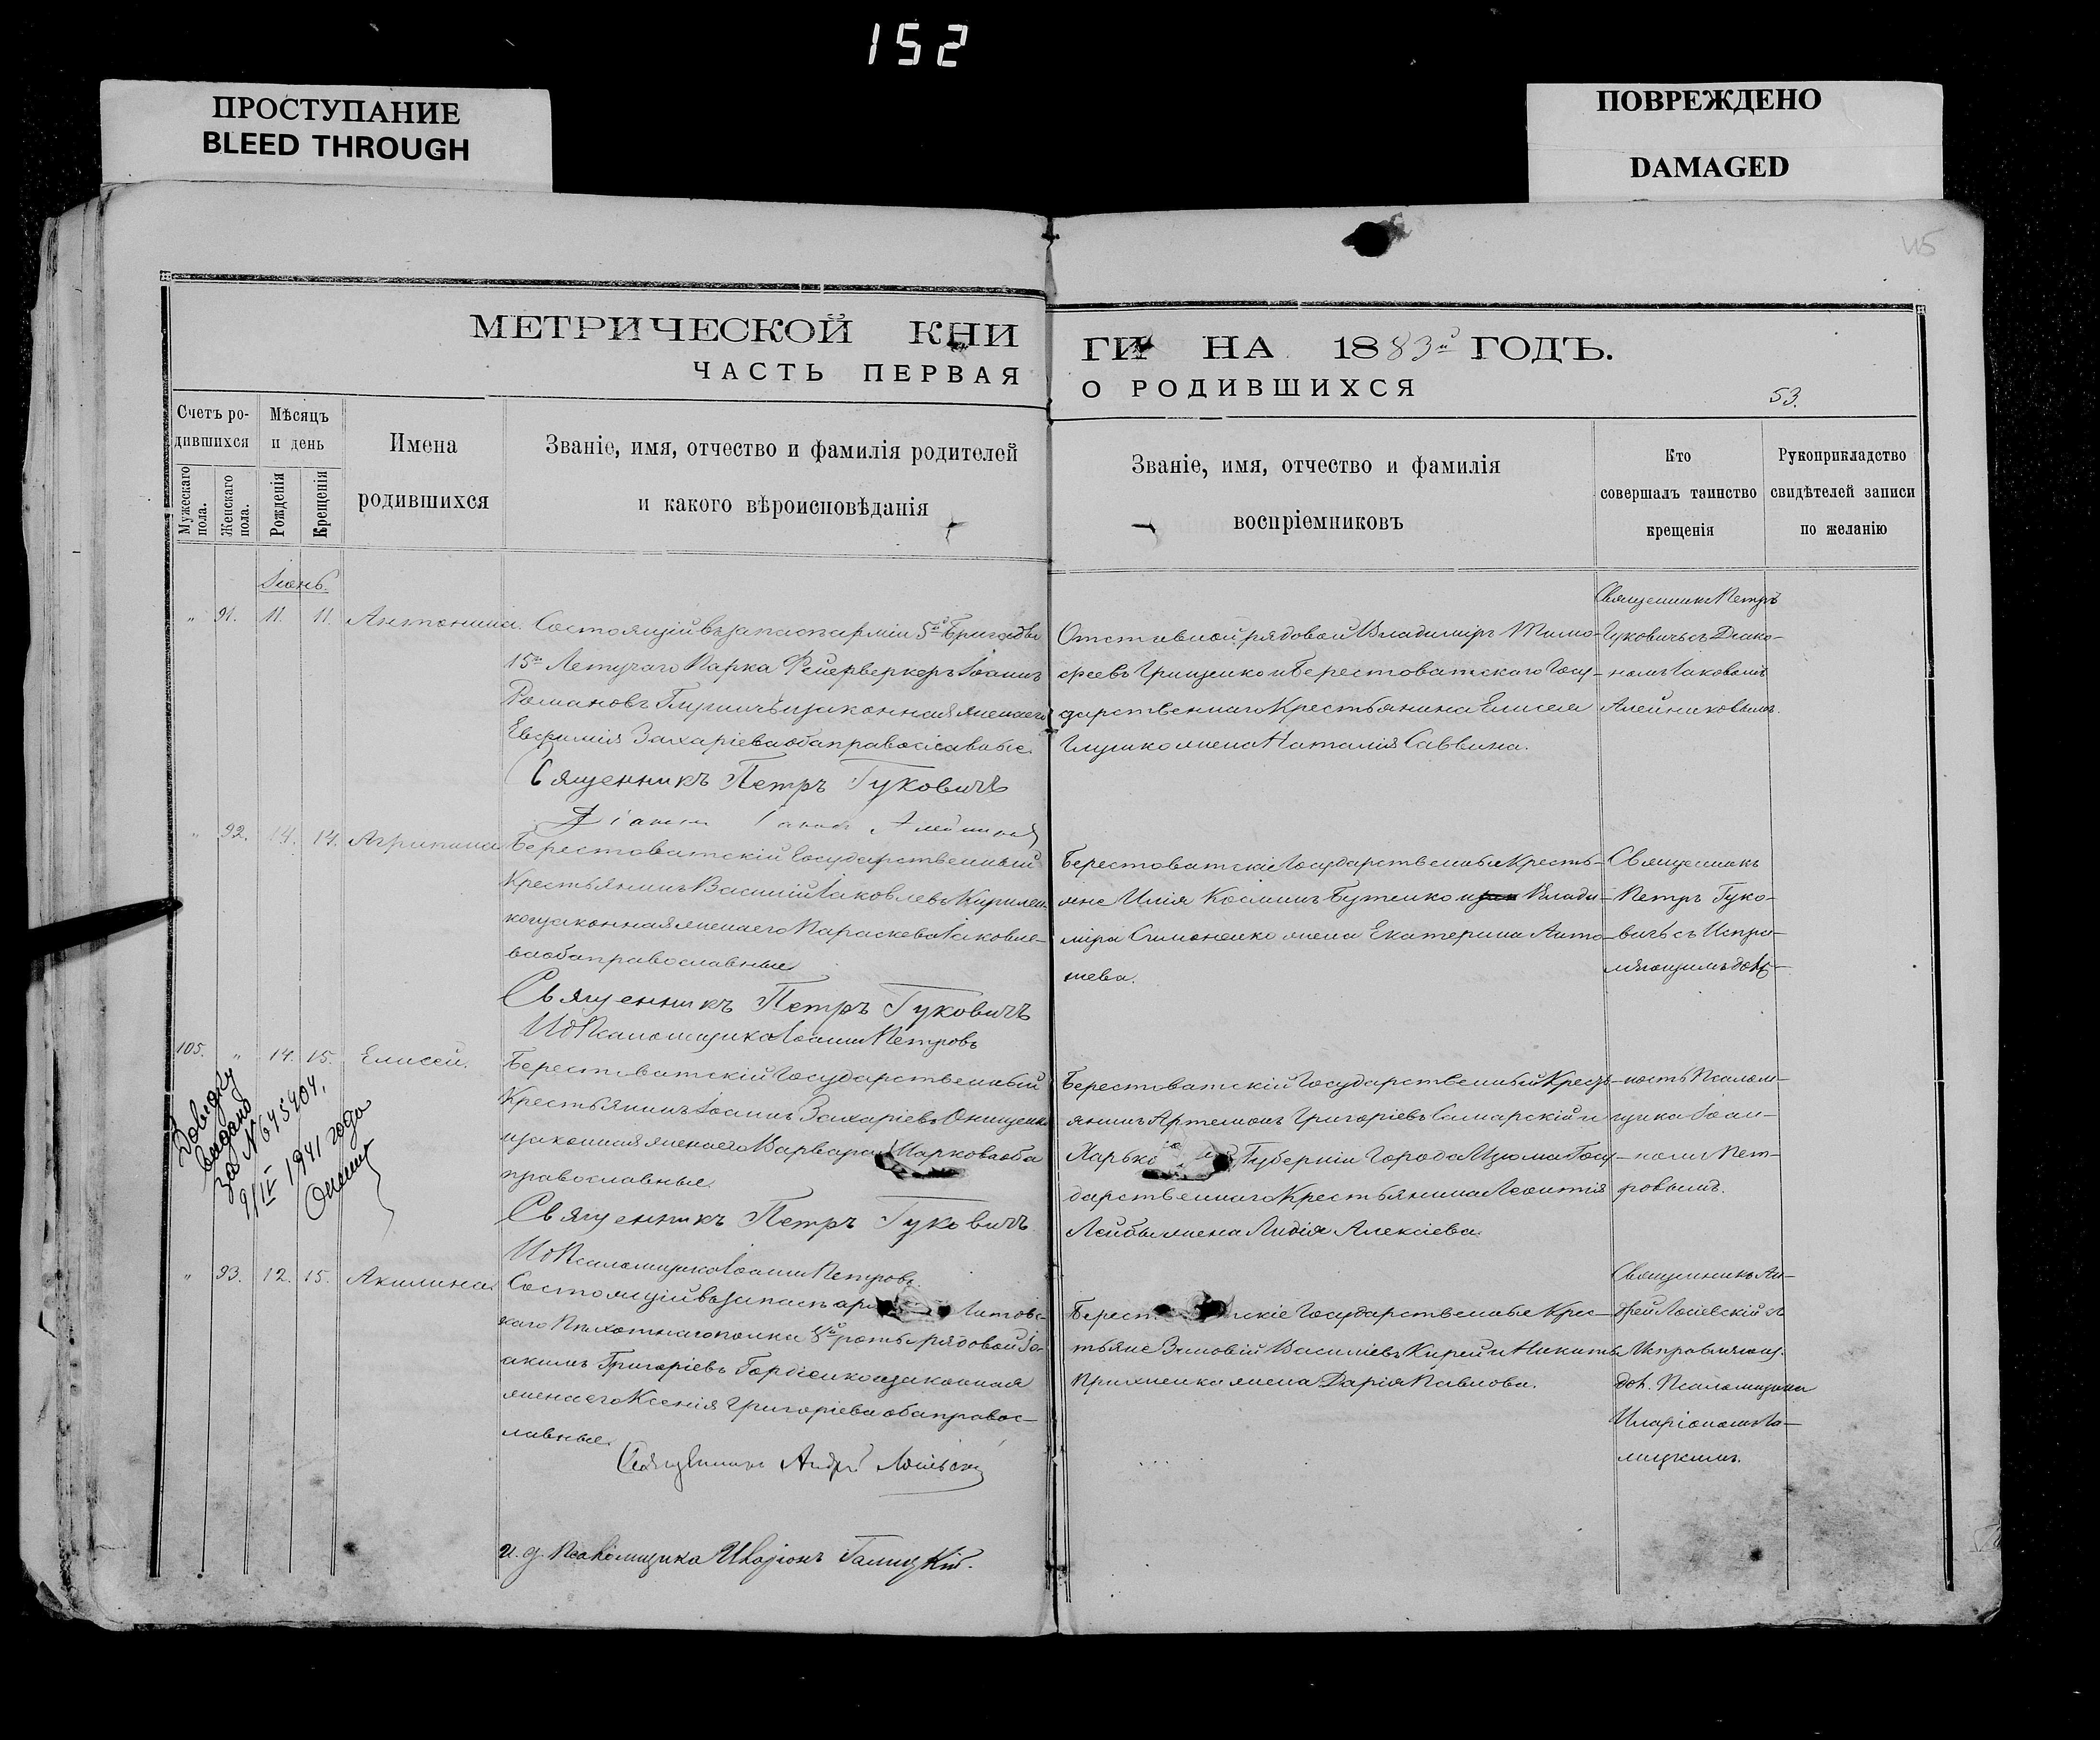 152
ПРОСТУПАНИЕ
BLEED THROUGH
ПОВРЕЖДЕНО
DAMAGED
115
МЕТРИЧЕСКОЙ КНИ
ГИ НА 1883й ГОДЪ.
ЧАСТЬ ПЕРВАЯ
О РОДИВШИХСЯ
53.
Счетъ ро-
дившихся
Мужескаго пола.
Женскаго пола.
Мѣсяцъ
и день
Рожденія
Крещенія
Имена
родившихся
Званіе, имя, отчество и фамилія родителей
и какого вѣроисповѣданія
Званіе, имя, отчество и фамилія
воспріемниковъ
Кто
совершалъ таинство
крещенія
Рукоприкладство
свидѣтелей записи
по желанію
Іюнь.
„ 91. 11. 11. Антонина.
Состоящій въ запасѣ арміи 5й Бригады
15го Летучаго Парка Фейерверкеръ Іоаннъ
Романовъ и законная жена его
Евфимія Захаріева оба православные.
Священникъ Петръ Гуковичъ
Отставной рядовой Владиміръ Тимо-
феевъ Грищенко и Берестоватскаго Госу-
дарственнаго Крестьянина Елисея
Глушко жена Наталія Саввина.
Священникъ Петръ
Гуковичъ съ Діако-
номъ Іаковомъ
Алейниковымъ.
„ 92. 14. 14. Агрипина
Берестоватскій Государственный
Крестьянинъ Василій Іаковлевъ Кирилен-
ко и законная жена его Параскева Іаковле-
ва оба православные
Священникъ Петръ Гуковичъ
ИдПсаломщика Іоаннъ Петровъ
Берестоватскіе Государственные Кресть-
яне Илія Косминъ Бутенко и Влади-
міра Симоненко жена Екатерина Анто-
нева.
Священникъ
Петръ Гуко-
вичъ съ Испра-
вляющимъ долж-
105. „ 14. 15. Елисей.
Берестоватскій Государственный
Крестьянинъ Іоаннъ Захаріевъ Онищенко
и законная жена его Варвара Маркова оба
православные.
Священникъ Петръ Гуковичъ.
ИдПсаломщика Іоаннъ Петровъ.
Берестоватскій Государственный Кресть-
янинъ Артемонъ Григоріевъ Самарскій и
Харько Губерніи Города Изюма Госу-
дарственнаго Крестьянина Леонтія
Лейбы жена Лидія Алексіева.
ность Псалом-
щика Іоан-
номъ Пет-
ровымъ.
Довідку
видано
за N 645404.
9/IV 1941 года
„ 93. 12. 15. Акилина.
Состоящій въ запасѣ ар Литовс-
каго Пѣхотнаго полка 8й роты рядовой Іо-
акимъ Григоріевъ Гордіенко и законная
жена его Ксенія Григоріева оба правос-
лавные.
Священникъ Андрей
и. д. Псаломщика Иларіонъ Галицкій.
Берест скіе Государственные Крес-
тьяне Зиновій Василіевъ Кирей и Никиты
жена Дарія Павлова.
Священникъ Ан-
дрей съ
Исправляющ.
дол. Псаломщика
Иларіономъ Га-
лицкимъ.